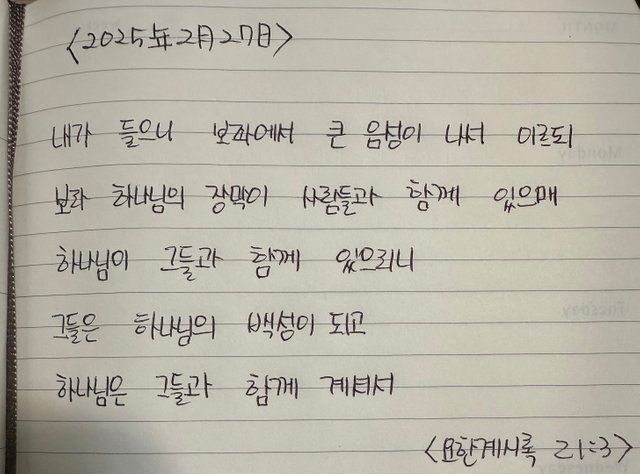 <2025年2月27日>
내가 들으니 보좌에서 큰 음성이 나서 이르되
보라 하나님의 장막이 사람들과 함께 있으매
하나님이 그들과 함께 있으리니
그들은 하나님의 백성이 되고
하나님은 그들과 함께 계셔서
<요한계시록 21:3>
MONTH
Monday
Tuesday